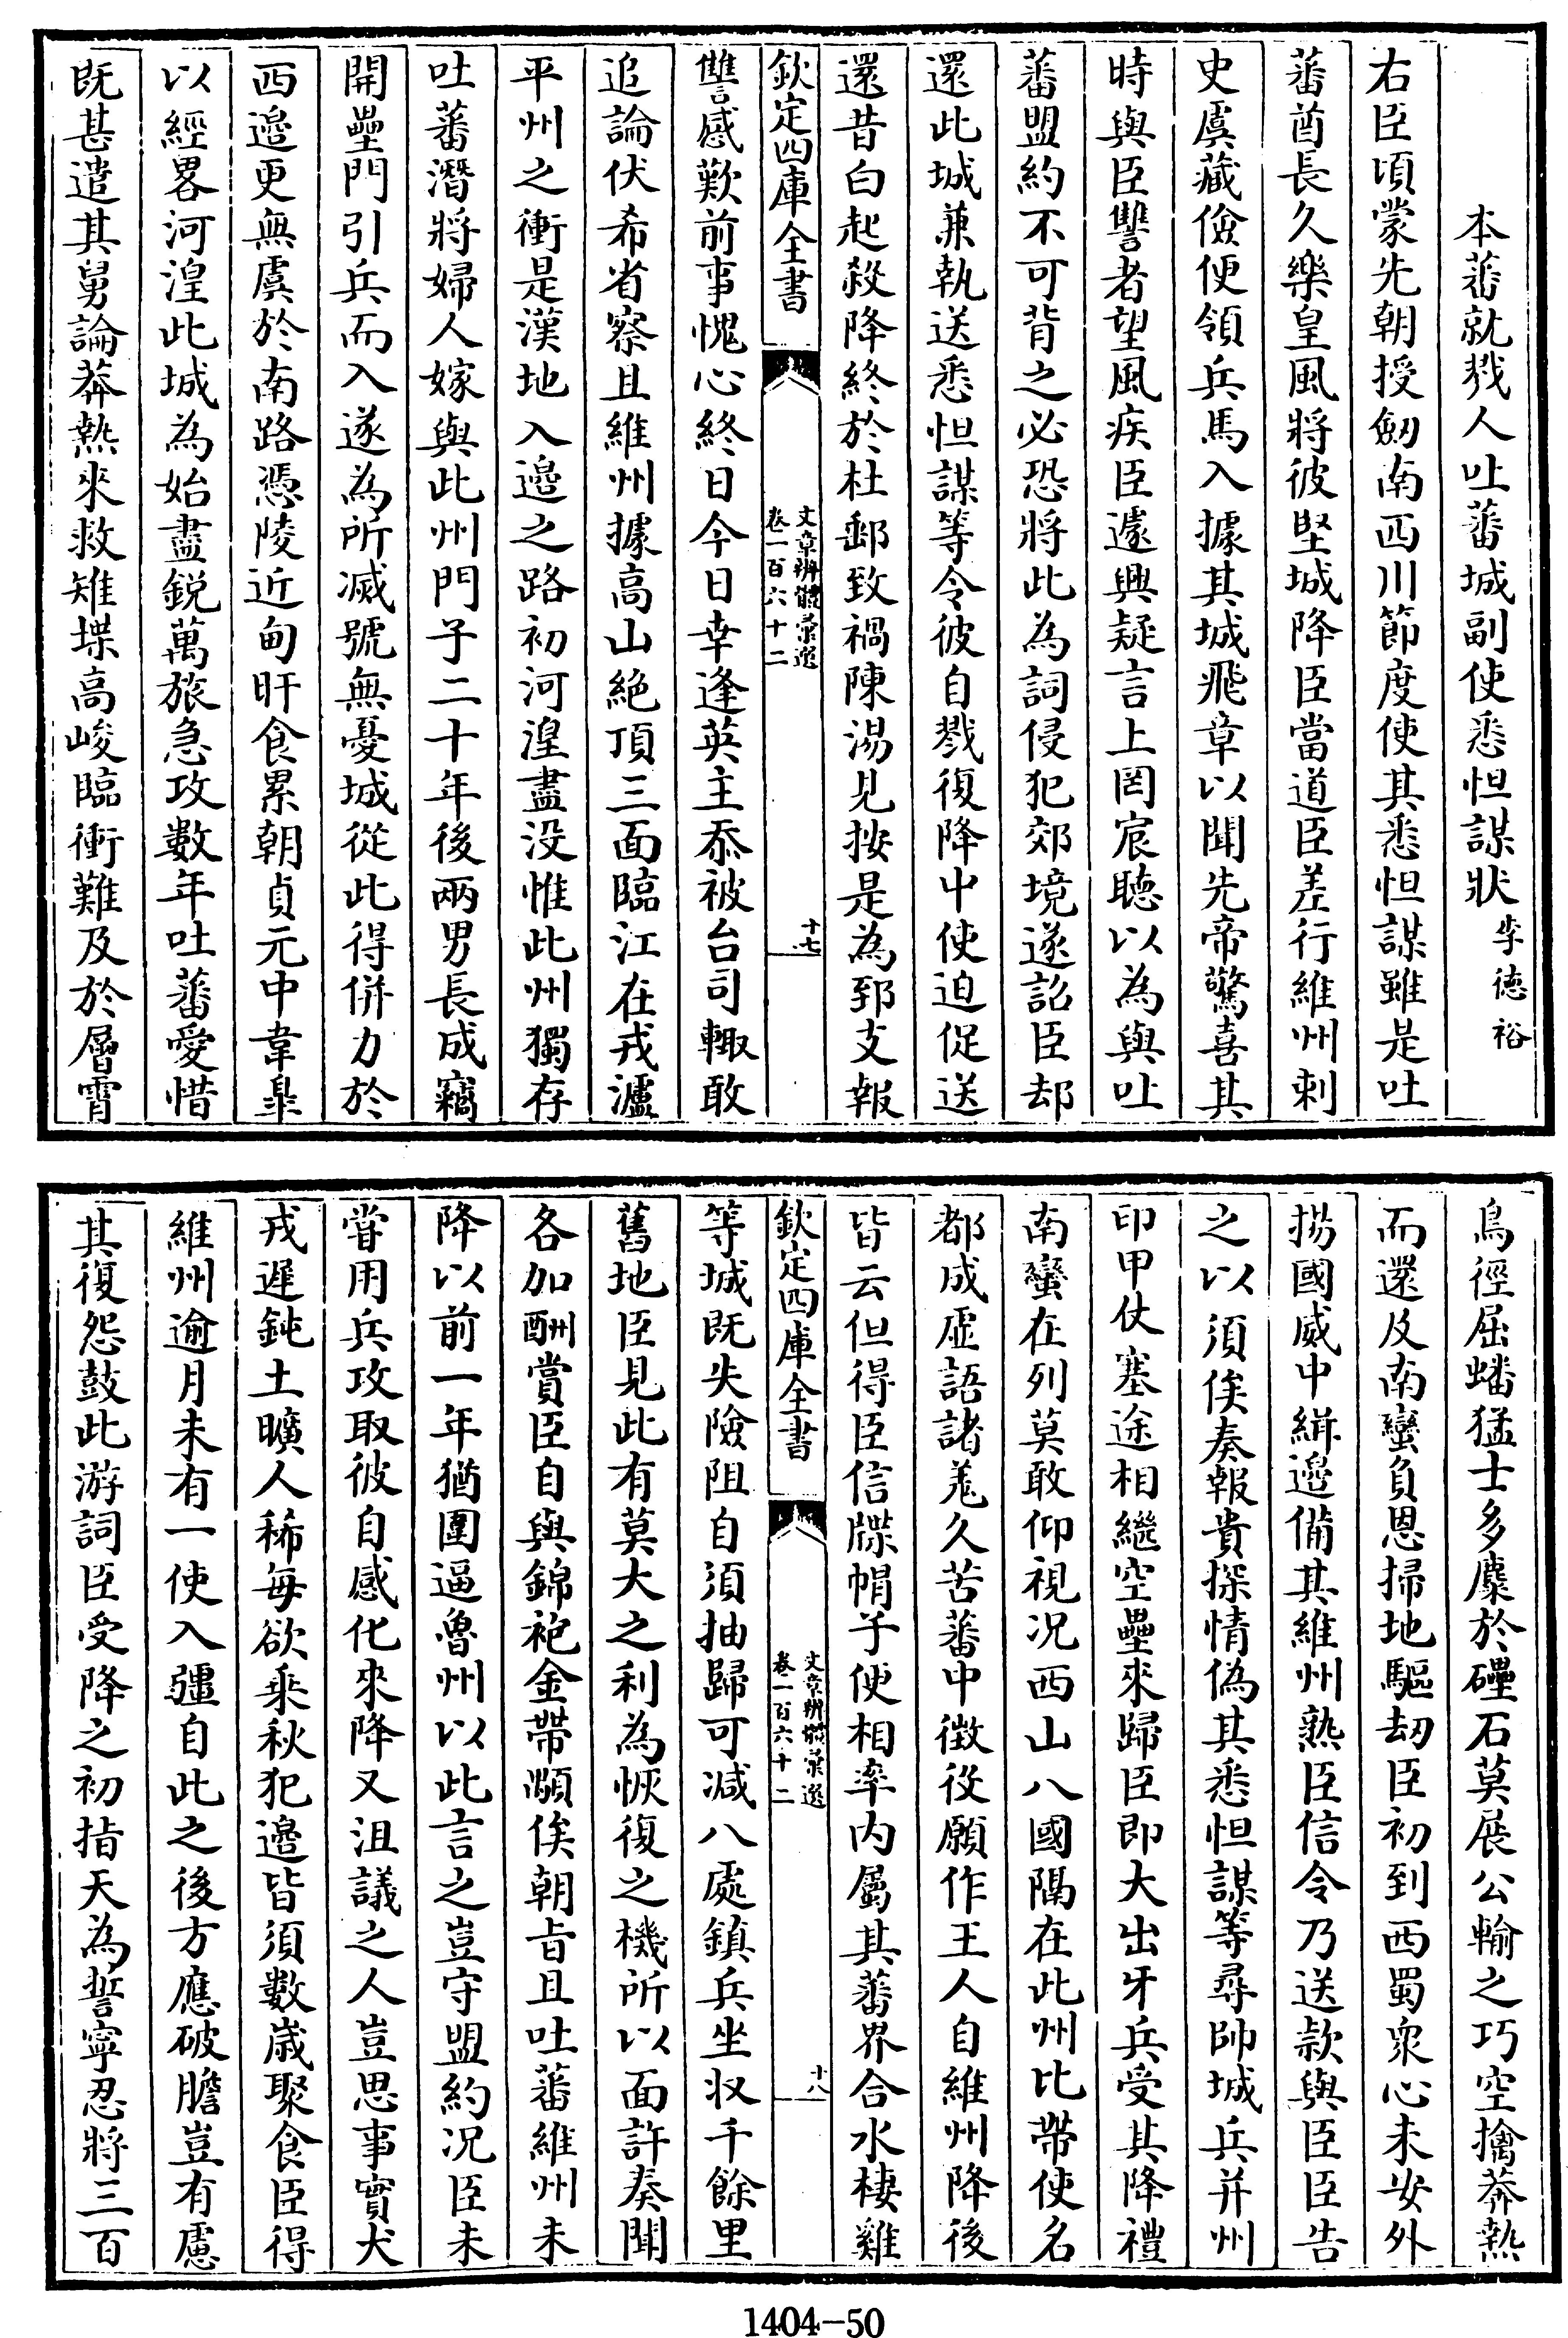 本蕃就戮人吐蕃城副使悉怛謀狀李德裕
右臣頃蒙先朝授劒南西川節度使其悉怛謀雖是吐
蕃酋長久樂皇風將彼堅城降臣當道臣差行維州刺
史虞藏儉便領兵馬入據其城飛章以聞先帝驚喜其
時與臣讐者望風疾臣遽興疑言上罔宸聽以為與吐
蕃盟約不可背之必恐將此為詞侵犯郊境遂詔臣却
還此城兼執送悉怛謀等令彼自戮復降中使迫促送
還昔白起殺降終於杜郵致禍陳湯見按是為郅支報
欽定四庫全書
文章辨體彙選
卷一百六十二
十七
讐感歎前事愧心終日今日幸逢英主忝被台司輒敢
追論伏希省察且維州據高山絶頂三面臨江在戎瀘
平州之衝是漢地入邉之路初河湟盡没惟此州獨存
吐蕃潛將婦人嫁與此州門子二十年後兩男長成竊
開壘門引兵而入遂為所滅號無憂城從此得併力於
西邉更無虞於南路憑陵近甸旰食累朝貞元中韋臯
以經畧河湟此城為始盡鋭萬旅急攻數年吐蕃愛惜
既甚遣其舅論莽熱來救雉堞高峻臨衝難及於層霄
鳥徑屈蟠猛士多糜於礧石莫展公輸之巧空擒莽熱
而還及南蠻負恩掃地驅刼臣初到西蜀衆心未安外
揚國威中緝邉備其維州熟臣信令乃送款與臣臣告
之以須俟奏報貴探情偽其悉怛謀等尋帥城兵并州
印甲仗塞途相繼空壘來歸臣即大出牙兵受其降禮
南蠻在列莫敢仰視况西山八國隔在此州比帶使名
都成虚語諸羌久苦蕃中徴役願作王人自維州降後
皆云但得臣信牒帽子便相率内屬其蕃界合水棲雞
欽定四庫全書
文章辨體彙選
卷一百六十二
十八
等城既失險阻自須抽歸可减八處鎮兵坐収千餘里
舊地臣見此有莫大之利為恢復之機所以面許奏聞
各加酬賞臣自與錦袍金帶顒俟朝旨且吐蕃維州未
降以前一年猶圍逼魯州以此言之豈守盟約况臣未
嘗用兵攻取彼自感化來降又沮議之人豈思事實犬
戎遲鈍土曠人稀每欲乘秋犯邉皆須數嵗聚食臣得
維州逾月未有一使入疆自此之後方應破膽豈有慮
其復怨鼓此游詞臣受降之初指天為誓寧忍將三百
1404-50